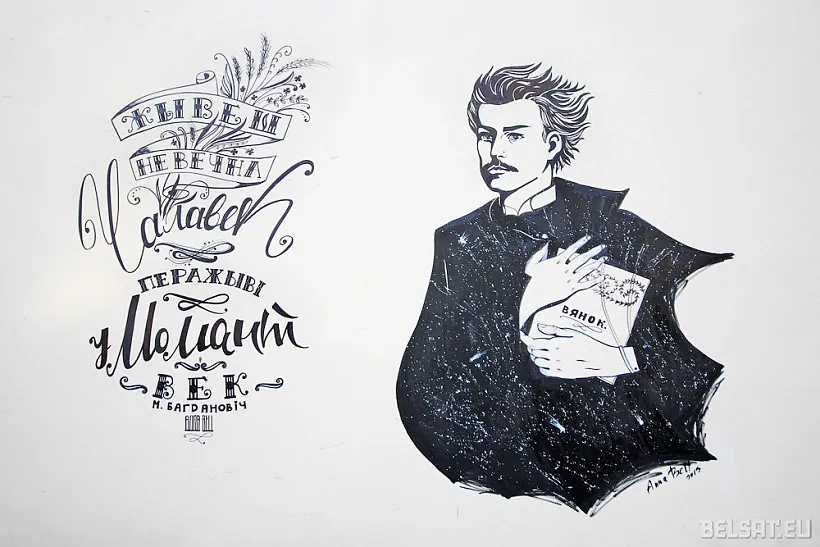 ЖЫВЕШ
НЕ ВЕЧНА
Чалавек
ПЕРАЖЫВІ
у Момант
ВЕК
М. БАГДАНОВІЧ
ВЯНОК.
2015
BELSAT.EU